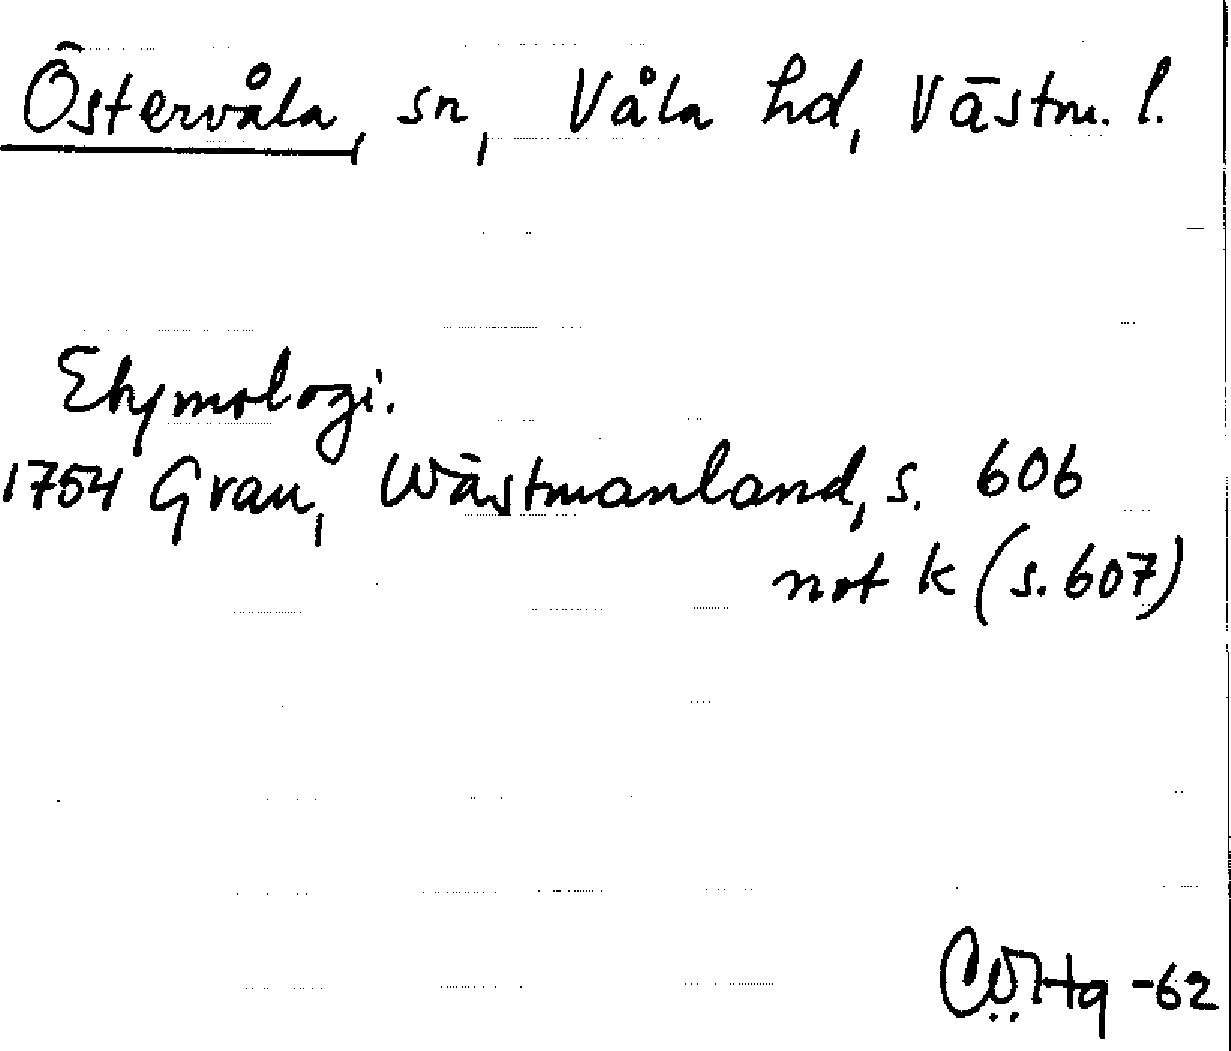 Östervåla, sn, Våla hd, Västm. l.
Etymologi.
1754 Grau, Wästmanland, s. 606
not k (s. 607)
-62